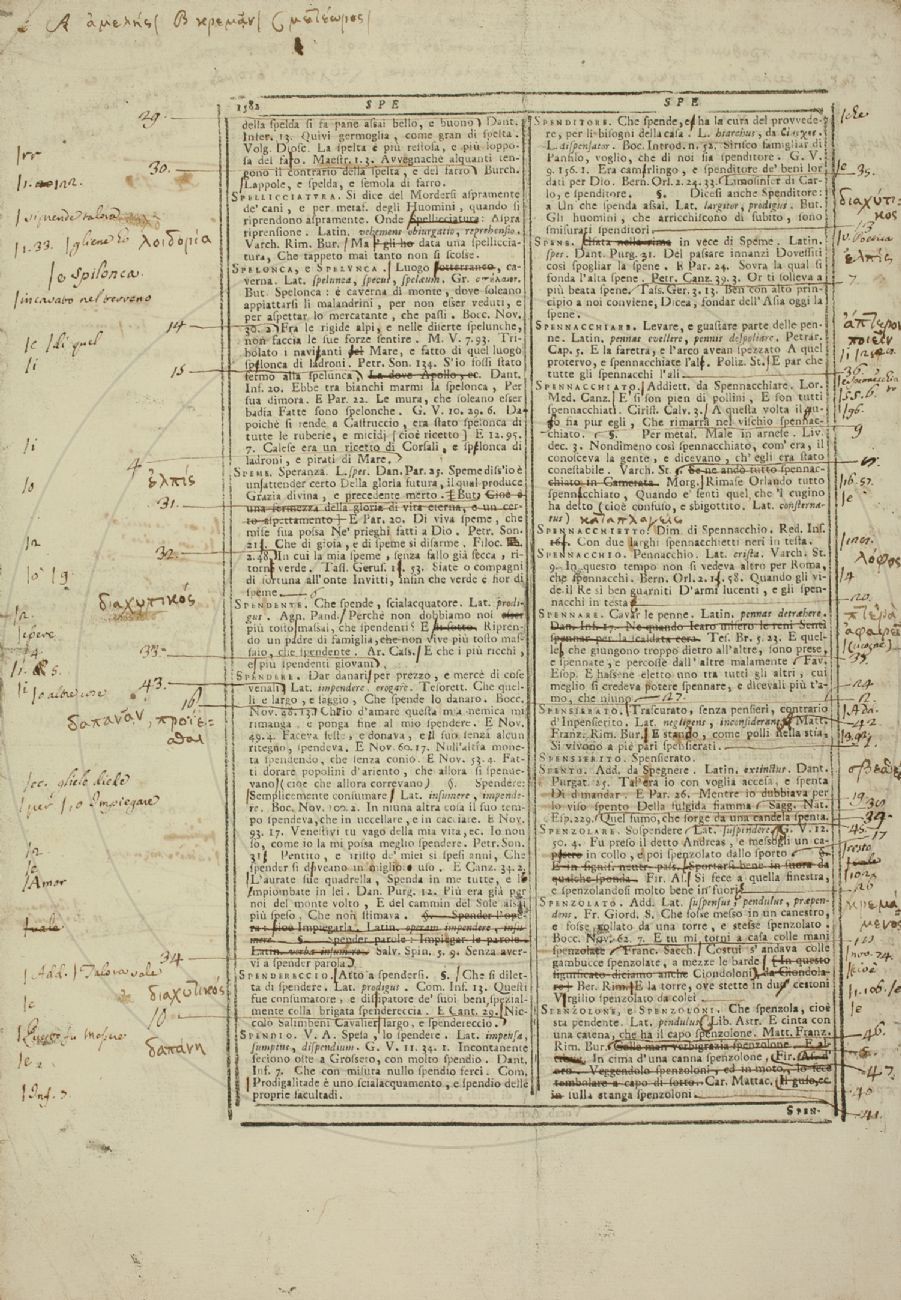 A ἀμελής/ B κρεμᾶν/ C μετέωρος/
1582 SPE
SPE
della spelda si fa pane assai bello, e buono) Dant.
Infer. 13. Quivi germoglia, come gran di spelta.
Volg. Diosc. La spelta è più restosa, e più loppo-
sa del farro. Maestr. 1. 3. Avvegnachè alquanti ten-
gono il contrario della spelta, e del farro) Burch.
Lappole, e spelda, e semola di farro.
SPELLICCIATURA. Si dice del Mordersi aspramente
de' cani, e per metaf. degli Huomini, quando si
riprendono aspramente. Onde Spellicciatura: Aspra
riprensione. Latin. vehemens obiurgatio, reprehensio.
Varch. Rim. Bur. Ma gli ho data una spelliccia-
tura, Che tappeto mai tanto non si scosse.
SPELONCA, e SPELUNCA. Luogo sotterraneo, ca-
verna. Lat. spelunca, specus, spelæum. Gr.
But. Spelonca: è caverna di monte, dove soleano
appiattarsi li malandrini, per non esser veduti, e
per aspettar lo mercatante, che passi. Bocc. Nov.
30. 2. Fra le rigide alpi, e nelle diserte spelunche,
non faccia le sue forze sentire. M. V. 7. 93. Tri-
bolato i naviganti del Mare, e fatto di quel luogo
spelonca di ladroni. Petr. Son. 134. S'io fossi stato
fermo alla spelunca La dove Apollo, ec. Dant.
Inf. 20. Ebbe tra bianchi marmi la spelonca, Per
sua dimora. E Par. 22. Le mura, che soleano esser
badia Fatte sono spelonche. G. V. 10. 29. 6. Da
poichè si rendè a Castruccio, era stato spelonca di
tutte le ruberie, e micidj (cioè ricetto) E 12. 95.
7. Calese era un ricetto di Corsali, e spelonca di
ladroni, e pirati di Mare.
SPEME. Speranza. L. spes. Dan. Par. 25. Speme diss'io è
un'attender certo Della gloria futura, il qual produce
Grazia divina, e precedente merto. (But. Cioè è
una fermezza della gloria di vita eterna, e un cer-
to aspettamento) E Par. 20. Di viva speme, che
mise sua possa Ne' prieghi fatti a Dio. Petr. Son.
21. Che di gioia, e di speme si disarme. Filoc.
2. 48. In cui la mia speme, senza fallo già secca, ri-
torne verde. Tass. Gerus. 1. 53. Siate o compagni
di fortuna all'onte Invitti, Infin che verde è fior di
speme.
SPENDENTE. Che spende, scialacquatore. Lat. prodi-
gus. Agn. Pand. Perchè non dobbiamo noi esser
più tosto masai, che spendenti? E Ripren-
do un padre di famiglia, che non vive più tosto mas-
saio, che spendente. Ar. Cass. E che i più ricchi,
e più spendenti giovani.
SPENDERE. Dar danari per prezzo, e mercè di cose
venali) Lat. impendere, erogare. Tesorett. Che quel-
li è largo, e saggio, Che spende lo danaro. Bocc.
Nov. 98. 13. Ch'io d'amare questa mia nemica mi
rimanga, e ponga fine al mio spendere. E Nov.
49. 4. Faceva feste, e donava, e il suo senza alcun
ritegno, spendeva. E Nov. 60. 17. Null'altra mone-
ta spendendo, che senza conio. E Nov. 53. 4. Fat-
ti dorare popolini d'ariento, che allora si spende-
vano (cioè che allora correvano) §. Spendere:
Semplicemente consumare. Lat. insumere, impende-
re. Boc. Nov. 100. 2. In niuna altra cosa il suo tem-
po spendeva, che in uccellare, e in cacciare. E Nov.
93. 17. Venestivi tu vago della mia vita, ec. Io non
so, come io la mi possa meglio spendere. Petr. Son.
31. Pentito, e tristo de' miei sì spesi anni, Che
spender si doveano in miglior uso. E Canz. 34. 2.
L'aurate sue quadrella, Spenda in me tutte, e le
impiombate in lei. Dan. Purg. 12. Più era già per
noi del monte volto, E del cammin del Sole assai
più speso, Che non stimava. §. Spender l'ope-
ra: cioè Impiegarla. Latin. operam impendere, insu-
mere. §. Spender parole: Impiegar le parole.
Latin. verba insumere. Salv. Spin. 5. 9. Senza aver-
vi a spender parola.
SPENDERECCIO. Atto a spendersi. §. Che si dilet-
ta di spendere. Lat. prodigus. Com. Inf. 13. Questi
fue consumatore, e dissipatore de' suoi beni, spezial-
mente colla brigata spendereccia. E Cant. 29. Nic-
colò Salimbeni Cavalier largo, e spendereccio.
SPENDIO. V. A. Spesa, lo spendere. Lat. impensa,
sumptus, dispendium. G. V. 11. 34. 1. Incontanente
feciono oste a Grosseto, con molto spendio. Dant.
Inf. 7. Che con misura nullo spendio ferci. Com.
Prodigalitade è uno scialacquamento, e spendio delle
proprie facultadi.
SPENDITORE. Che spende, e ha la cura del provvede-
re, per li bisogni della casa. L. Lat.
L. dispensator. Boc. Introd. n. 52. Sirisco famigliar di
Panfilo, voglio, che di noi sia spenditore. G. V.
9. 156. 1. Era camarlingo, e spenditore de' beni lor
dati per Dio. Bern. Orl. 2. 24. 33. Limosinier di Car-
lo, e spenditore. §. Dicesi anche Spenditore:
a Un che spenda assai. Lat. largitor, prodigus. But.
Gli huomini, che arricchiscono di subito, sono
smisurati spenditori.
SPENE. Usata nella rima in vece di Speme. Latin.
spes. Dant. Purg. 31. Del passare innanzi Dovessiti
così spogliar la spene. E Par. 24. Sovra la qual si
fonda l'alta spene. Petr. Canz. 39. 3. Or ti solleva a
più beata spene. Tass. Ger. 3. 13. Ben con alto prin-
cipio a noi conviene, Dicea, fondar dell'Asia oggi la
spene.
SPENNACCHIARE. Levare, e guastare parte delle pen-
ne. Latin. pennas evellere, pennis despoliare. Petrar.
Cap. 5. E la faretra, e l'arco avean spezzato A quel
protervo, e spennacchiate l'ali. Poliz. St. E par che
tutte gli spennacchi l'ali.
SPENNACCHIATO. Addiett. da Spennacchiare. Lor.
Med. Canz. E' si son pien di pollini, E son tutti
spennacchiati. Ciriff. Calv. 3. A questa volta il gu-
fo ha pur egli, Che rimarrà nel vischio spennac-
chiato. §. Per metaf. Male in arnese. Liv.
dec. 3. Nondimeno così spennacchiato, com'era, il
conosceva la gente, e dicevano, ch'egli era stato
conestabile. Varch. St. Se ne andò tutto spennac-
chiato in Camerata. Morg. Rimase Orlando tutto
spennacchiato, Quando e' sentì quel che 'l cugino
ha detto (cioè confuso, e sbigottito. Lat. consterna-
tus) καταπλαγείς
SPENNACCHIETTO. Dim. di Spennacchio. Red. Ins.
Con due larghi spennacchietti neri in testa.
SPENNACCHIO. Pennacchio. Lat. crista. Varch. St.
9. In questo tempo non si vedeva altro per Roma,
che spennacchi. Bern. Orl. 2. 58. Quando gli vi-
de il Re sì ben guarniti D'armi lucenti, e gli spen-
nacchi in testa.
SPENNARE. Cavar le penne. Latin. pennas detrahere.
Dan. Inf. 17. Ne quando Icaro misero le reni Sentì
spennar per la scaldata cera. Tes. Br. 5. 23. E quel-
le, che giungono troppo dietro all'altre, sono prese,
e spennate, e percosse dall'altre malamente. Fav.
Esop. E hassene eletto uno tra tutti gli altri, cui
meglio si credeva potere spennare, e dicevali più t'a-
mo, che niuno.
SPENSIERATO. Trascurato, senza pensieri, contrario
d'Inpensierito. Lat. negligens, inconsiderans. Matt.
Franz. Rim. Bur. E stando, come polli nella stia,
Si vivono a piè pari spensierati.
SPENSIERITO. Spensierato.
SPENTO. Add. da Spegnere. Latin. extinctus. Dant.
Purgat. 25. Tal'era io con voglia accesa, e spenta
Di dimandar. E Par. 26. Mentre io dubbiava per
lo viso spento Della fulgida fiamma. Sagg. Nat.
Esp. 229. Quel fumo, che sorge da una candela spenta.
SPENZOLARE. Sospendere. Lat. suspendere. G. V. 12.
50. 4. Fu preso il detto Andreas, e messogli un ca-
in collo, e poi spenzolato dallo sporto §.
E in signif. neutr. pass. Sportarsi bene in fuora da
qualche sponda. Fir. As. Si fece a quella finestra,
e spenzolandosi molto bene in fuori.
SPENZOLATO. Add. Lat. suspensus, pendulus, præpen-
dens. Fr. Giord. S. Che fosse messo in un canestro,
e fosse collato da una torre, e stesse spenzolato.
Bocc. Nov. 62. 7. E tu mi torni a casa colle mani
spenzolate. Franc. Sacch. Costui s'andava colle
gambucce spenzolate, a mezze le barde (In questo
significato diciamo anche Ciondoloni) da Ciondola-
re) Ber. Rim. E la torre, ove stette in due cestoni
Virgilio spenzolato da colei.
SPENZOLONE, e SPENZOLONI. Che spenzola, cioè
sta pendente. Lat. pendulus. Lib. Astr. E cinta con
una catena, che ha il capo spenzolone. Matt. Franz.
Rim. Bur. Colle man verbigrazia spenzolone, E al-
trove. In cima d'una canna spenzolone, (Fir. As. d'
oro. Veggendolo spenzoloni, ed in moto, lo fece
tombolare a capo di sotto. Car. Mattac. Il gufo, ec.
in sulla stanga spenzoloni.
SPEN-
29.
30.
λοιδορία
e Spilonca
incavato nel terreno
14
15
4
ἐλπίς
31.
32.
διαχυτικός
33.
43.
16
δαπανᾶν, προΐε-
σθαι
per
Impiegare
Amor
34
Add.
Talora vale
διαχυτικός
10
δαπάνη
Inf. 7
35.
διαχυτι-
κός
13
ἐλπίς
7
ἄπτερον
ποιεῖν
36.
9
λόφος
20
πτερὰ
ἀφαιρεῖν
24
42
σβεσθείς
39
34
45
17
κρεμά-
μενος
46
47
40
41.